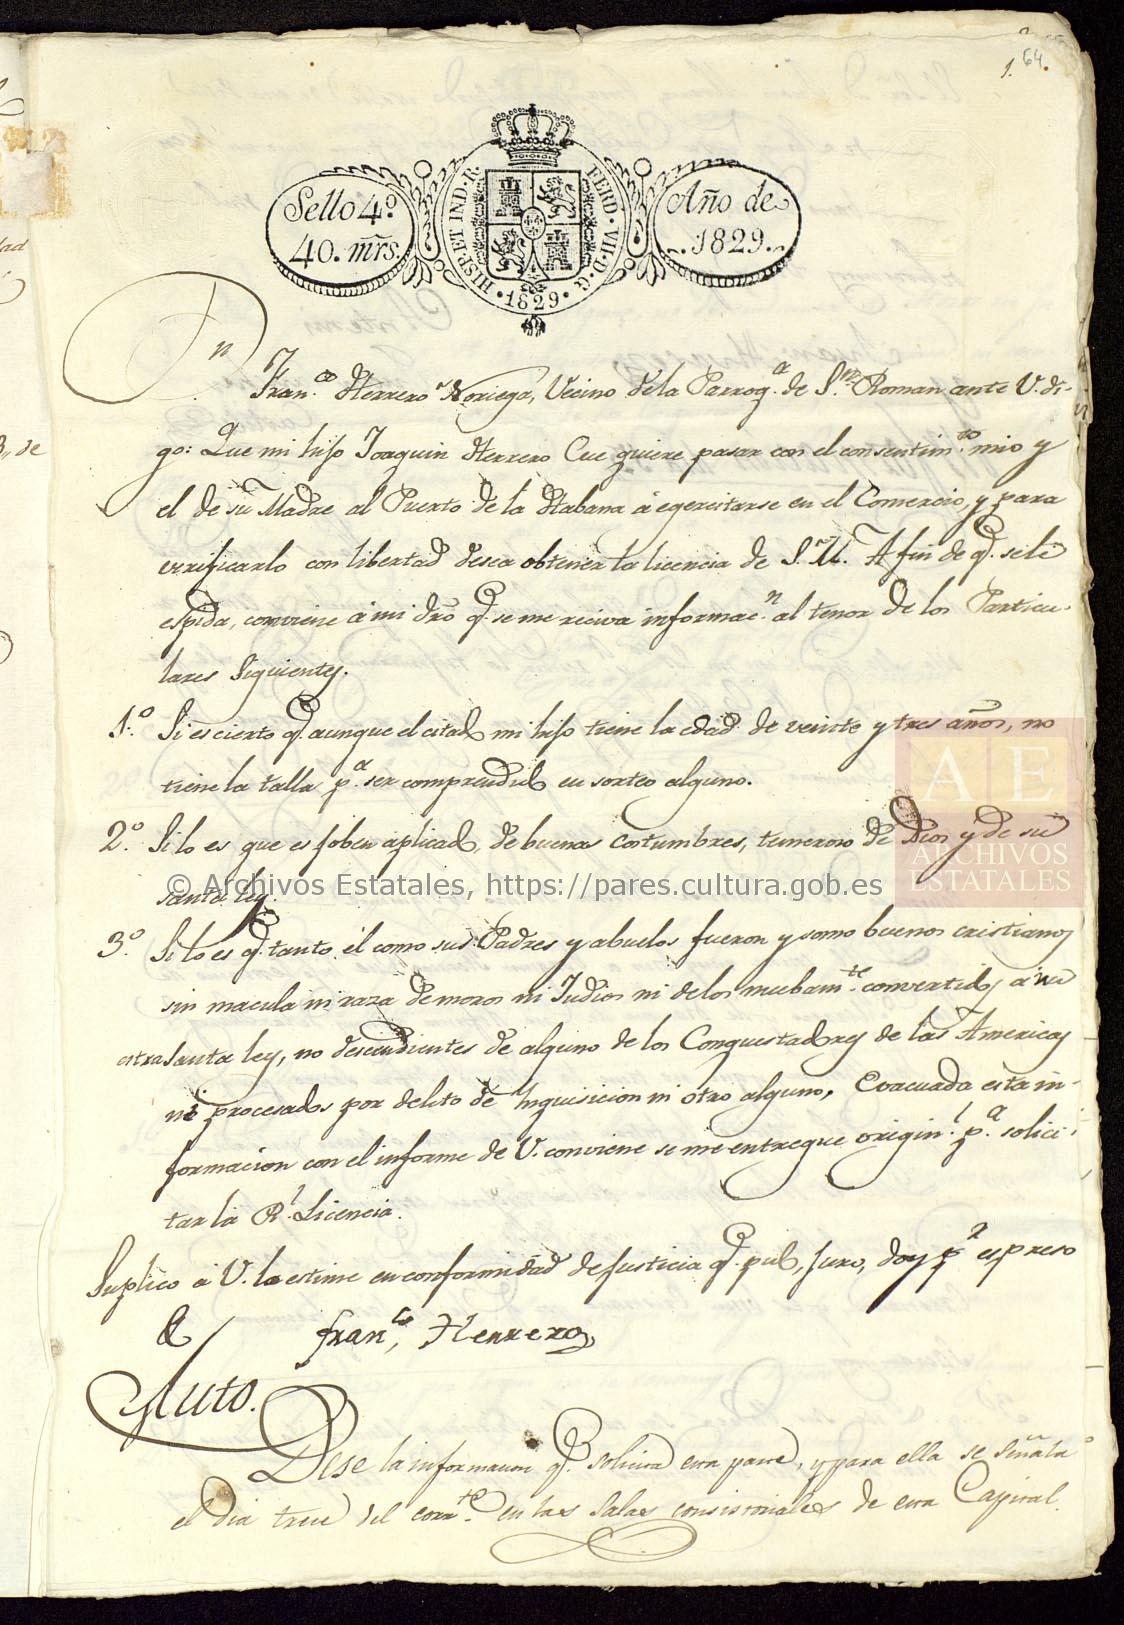 1. 64.
Sello 4º
40. mrs.
HISP. ET IND. R.
FERD. VII. D. G.
1829
Año de
1829.
Jn
Fran.co Herrero Noriega, Vecino de la Parroq.a de S.n Roman ante V. di-
go: Que mi hijo Joaquin Herrero Cue quiere pasar con el consentim.to mio y
el de su Madre al Puerto de la Habana á egercitarse en el Comercio, y para
verificarlo con libertad desea obtener la licencia de S. M. A fin de q.e se le
espida, conviene á mi dro q.e se me reciva informac.n al tenor de los Particu-
lares siguientes.
1.º Si es cierto q.e aunque el citado mi hijo tiene la edad de veinte y tres años, no
tiene la talla p.a ser comprendido en sorteo alguno.
2.º Si lo es que es joben aplicado, de buenas costumbres, temeroso de Dios y de su
santa ley.
3.º Si lo es q.e tanto él como sus Padres y abuelos fueron y somo buenos cristianos
sin macula ni raza de moros ni Judios ni de los nuebam.te convertidos á nu
estra Santa ley, no descendientes de alguno de los Conquestadores de las Americas
ni procesados por delito de Inquisicion ni otro alguno, Evacuada esta in-
formacion con el informe de V. conviene se me entregue origin.l p.a solici-
tar la R.l Licencia.
Suplico á V. lo estime en conformidad de justicia q.e pido, juro, doy p.r espreso
&
Fran.co Herrero
Auto.
Dese la informacion q.e solicita esta parte, y para ella se señala
el dia trece del corr.te en las Salas consistoriales de esta Capital.
© Archivos Estatales, https://pares.cultura.gob.es
AE
ARCHIVOS
ESTATALES
dad
3,, de